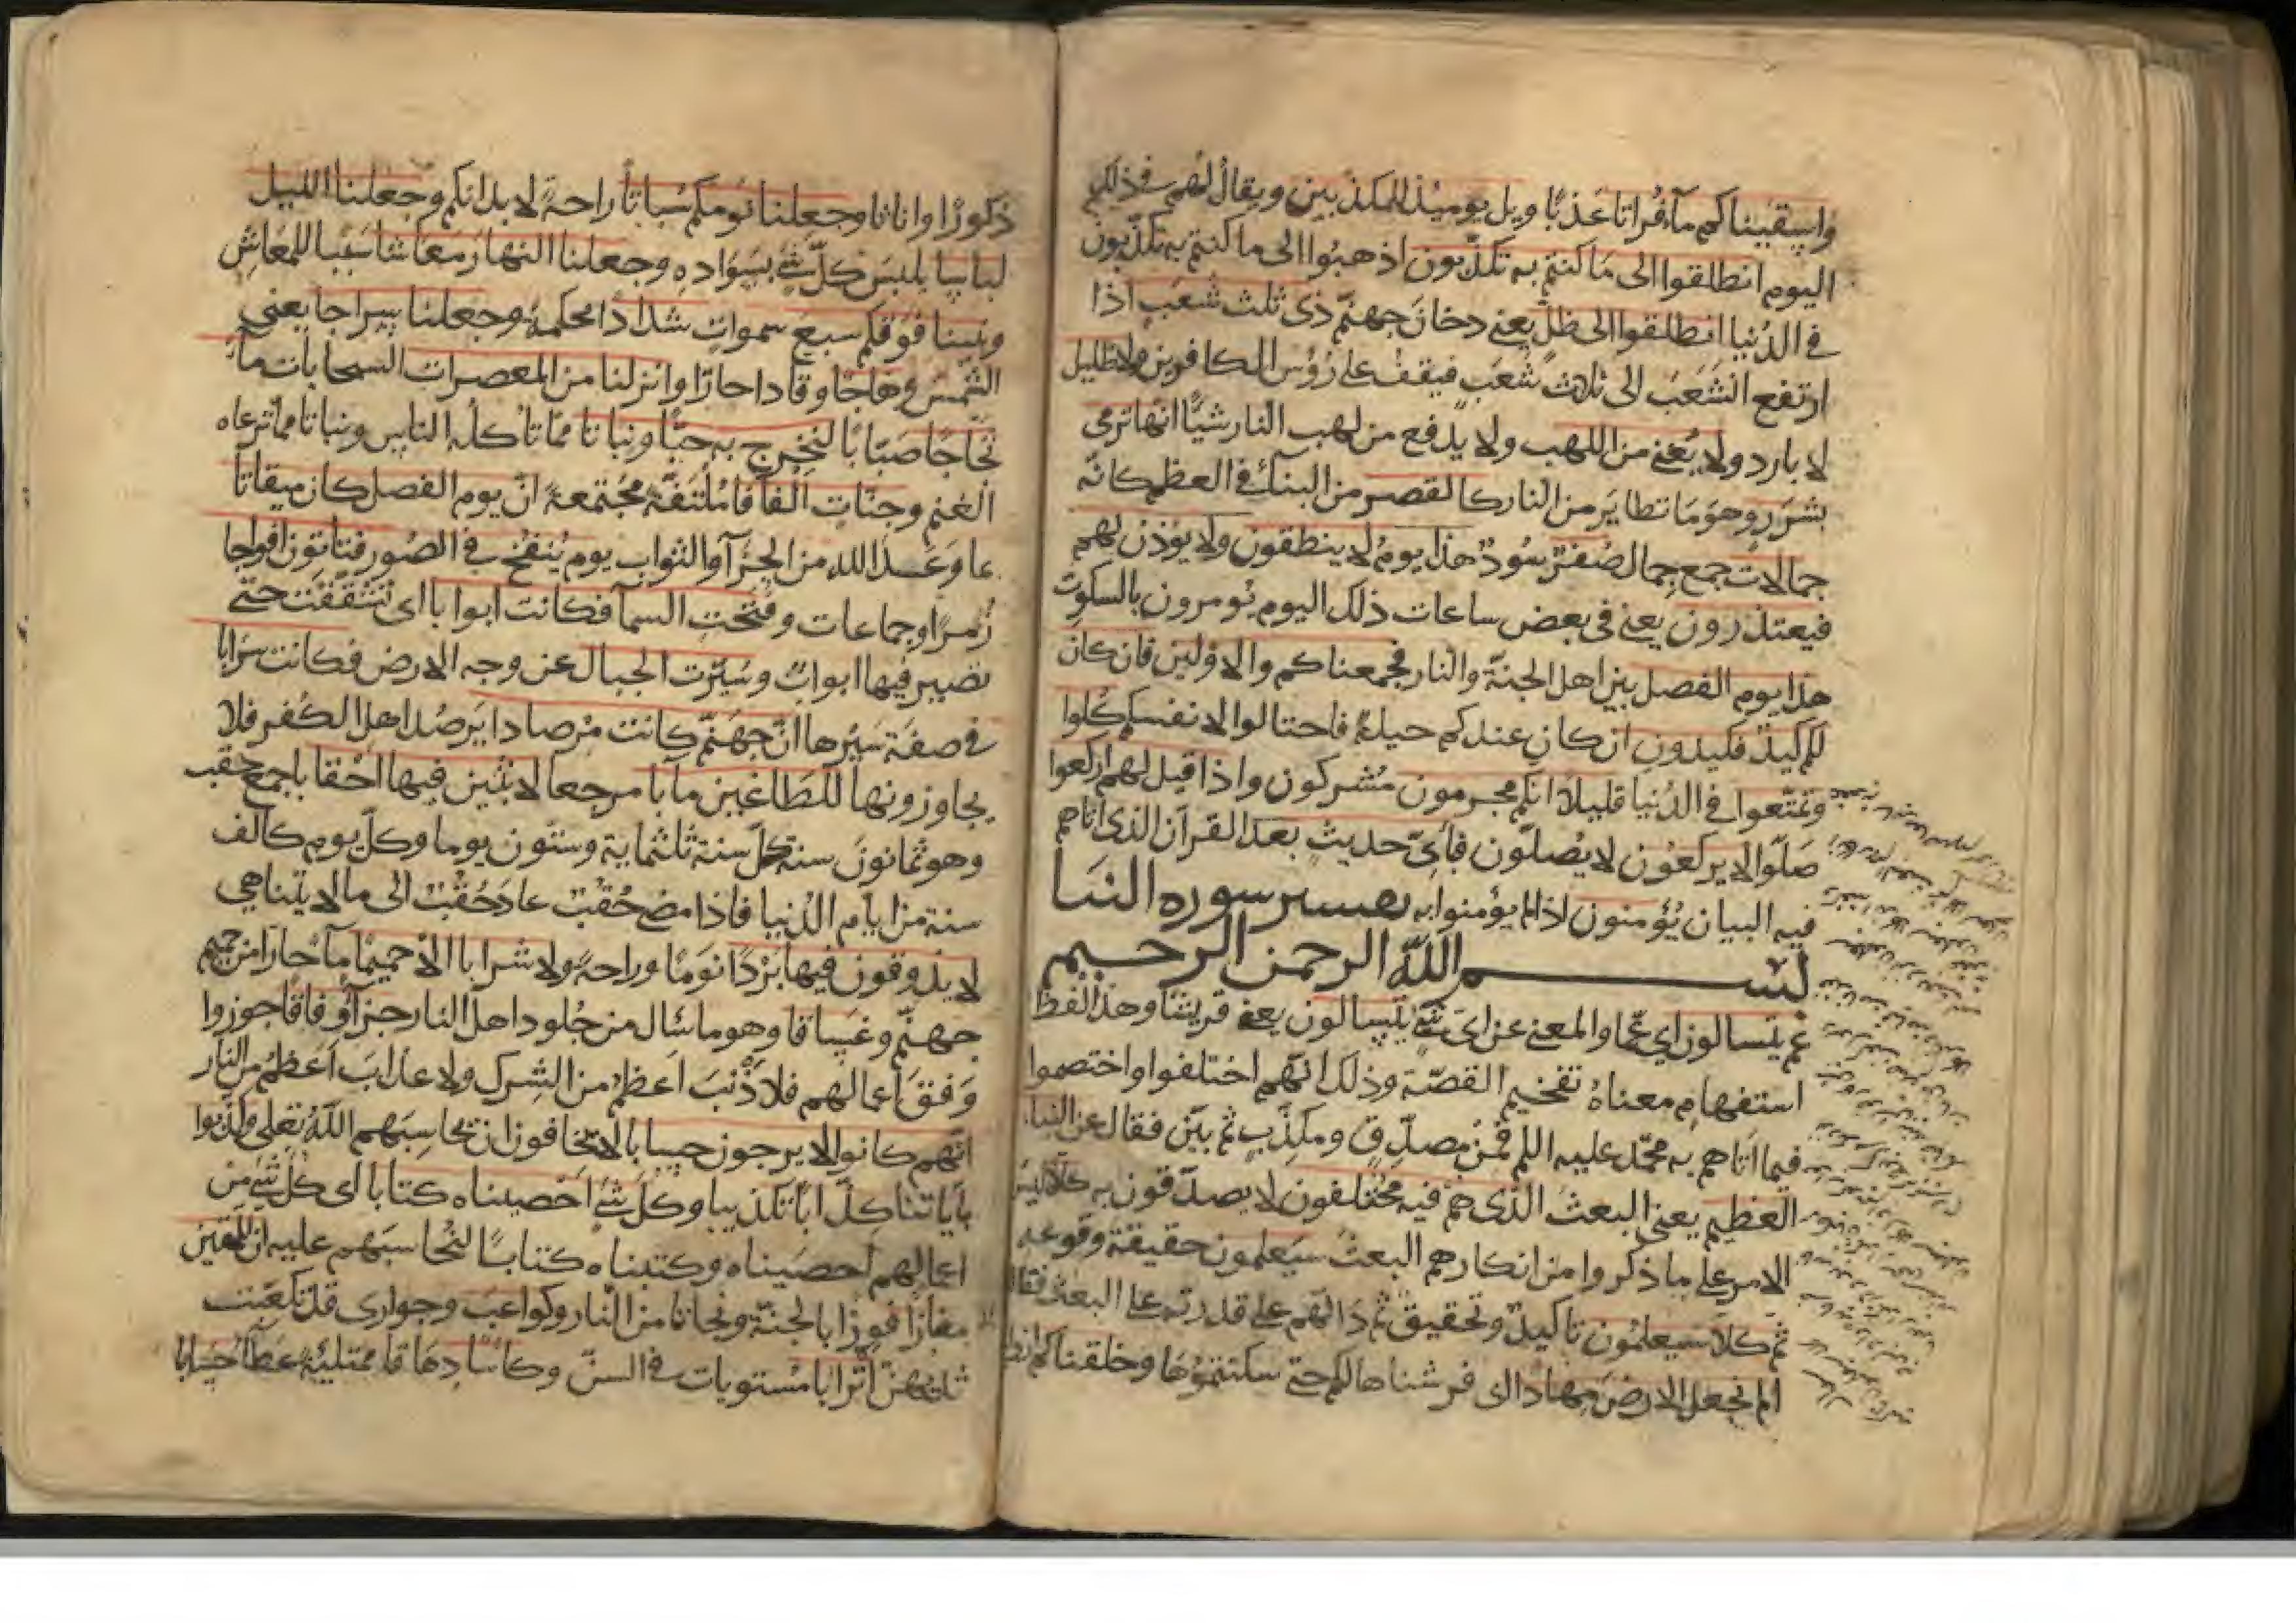 واسقيناكم مآء فراتا عذبا ويل يوميذ للمكذبين ويقال لهم في ذلك
اليوم انطلقوا الى ما كنتم به تكذبون اذهبوا الى ما كنتم به تكذبون
في الدنيا انطلقوا الى ظل يعني دخان جهنم ذى ثلث شعب اذا
ارتفع انشعب الى ثلاث شعب فيقف على رؤس الكافرين لا ظليل
لا بارد ولا يغني من اللهب ولا يدفع من لهب النار شيئا انها ترمي
بشرر وهو ما تطاير من النار كالقصر من البناء في العظم كانه
جمالات جمع جمال صفر سود هذا يوم لا ينطقون ولا يؤذن لهم
فيعتذرون يعني في بعض ساعات ذلك اليوم يومرون بالسكوت
هذا يوم الفصل بين اهل الجنة والنار جمعناكم والاولين فان كان
لكم كيد فكيدون ان كان عندكم حيلة فاحتالوا لانفسكم كلوا
وتمتعوا في الدنيا قليلا انكم مجرمون مشركون واذا قيل لهم اركعوا
صلوا لا يركعون لا يصلون فبأى حديث بعد القرآن الذى اتاهم
فيه البيان يؤمنون اذا لم يؤمنوا به تفسير سوره النبا
بسم الله الرحمن الرحيم
عم يتسالون اي عما والمعنى عن اى شئ يتسالون يعني قريشا وهذا لفظ
استفهام معناه تفخيم القصة وذلك انهم اختلفوا واختصموا
فيما اتاهم به محمد عليه السلم فمن مصدق ومكذب ثم بين فقال عن النبا
العظيم يعني البعث الذى هم فيه مختلفون لا يصدقون به كلا ليس
الامر على ما ذكروا من انكارهم البعث سيعلمون حقيقة وقوعه
ثم كلا سيعلمون تاكيد وتحقيق ثم دلهم على قدرته على البعث فقال
الم نجعل الارض مهادا اى فرشناها لكم حتى سكنتموها وخلقناكم
ذكورا واناثا وجعلنا نومكم سباتا راحة لابدانكم وجعلنا الليل
لباسا يلبس كل شئ بسواده وجعلنا النهار معاشا سببا للمعاش
وبنينا فوقكم سبع سموات شدادا محكمة وجعلنا سراجا يعني
الشمس وهاجا وقادا حارا وانزلنا من المعصرات السحابات مآء
ثجاجا صبابا لنخرج به حبا ونباتا مما تاكله الناس ونباتا مما ترعاه
الغنم وجنات الفافا ملتفة مجتمعة ان يوم الفصل كان ميقاتا
لما وعد الله من الجزآ والثواب يوم ينفخ في الصور فتاتون افواجا
زمرا وجماعات وفتحت السمآ فكانت ابوابا اى تشققت حتى
تصير فيها ابواب وسيرت الجبال عن وجه الارض فكانت سرابا
في صفة سيرها ان جهنم كانت مرصادا يرصد اهل الكفر فلا
يجاوزونها للطاغين مآبا مرجعا لابثين فيها احقابا جمع حقب
وهو ثمانون سنة كل سنة ثلثماية وستون يوما وكل يوم كالف
سنة من ايام الدنيا فاذا مضى حقب عاد حقب الى ما لا يتناهى
لا يذوقون فيها بردا نوما وراحة ولا شرابا الا حميما مآ حارا من حميم
جهنم وغساقا وهو ما سال من جلود اهل النار جزآء وفاقا جوزوا
وفق اعمالهم فلا ذنب اعظم من الشرك ولا عذاب اعظم من النار
انهم كانوا لا يرجون حسابا لا يخافون ان يحاسبهم الله تعلى وكذبوا
بآياتنا كذابا تكذيبا وكل شئ احصيناه كتابا اى كل شئ من
اعمالهم احصيناه وكتبناه كتابا لنحاسبهم عليه ان للمتقين
مفازا فوزا بالجنة ونجاة من النار وكواعب وجوارى قد تكعبت
ثديهن اترابا مستويات في السن وكاسا دهاقا ممتلئة عطآء حسابا